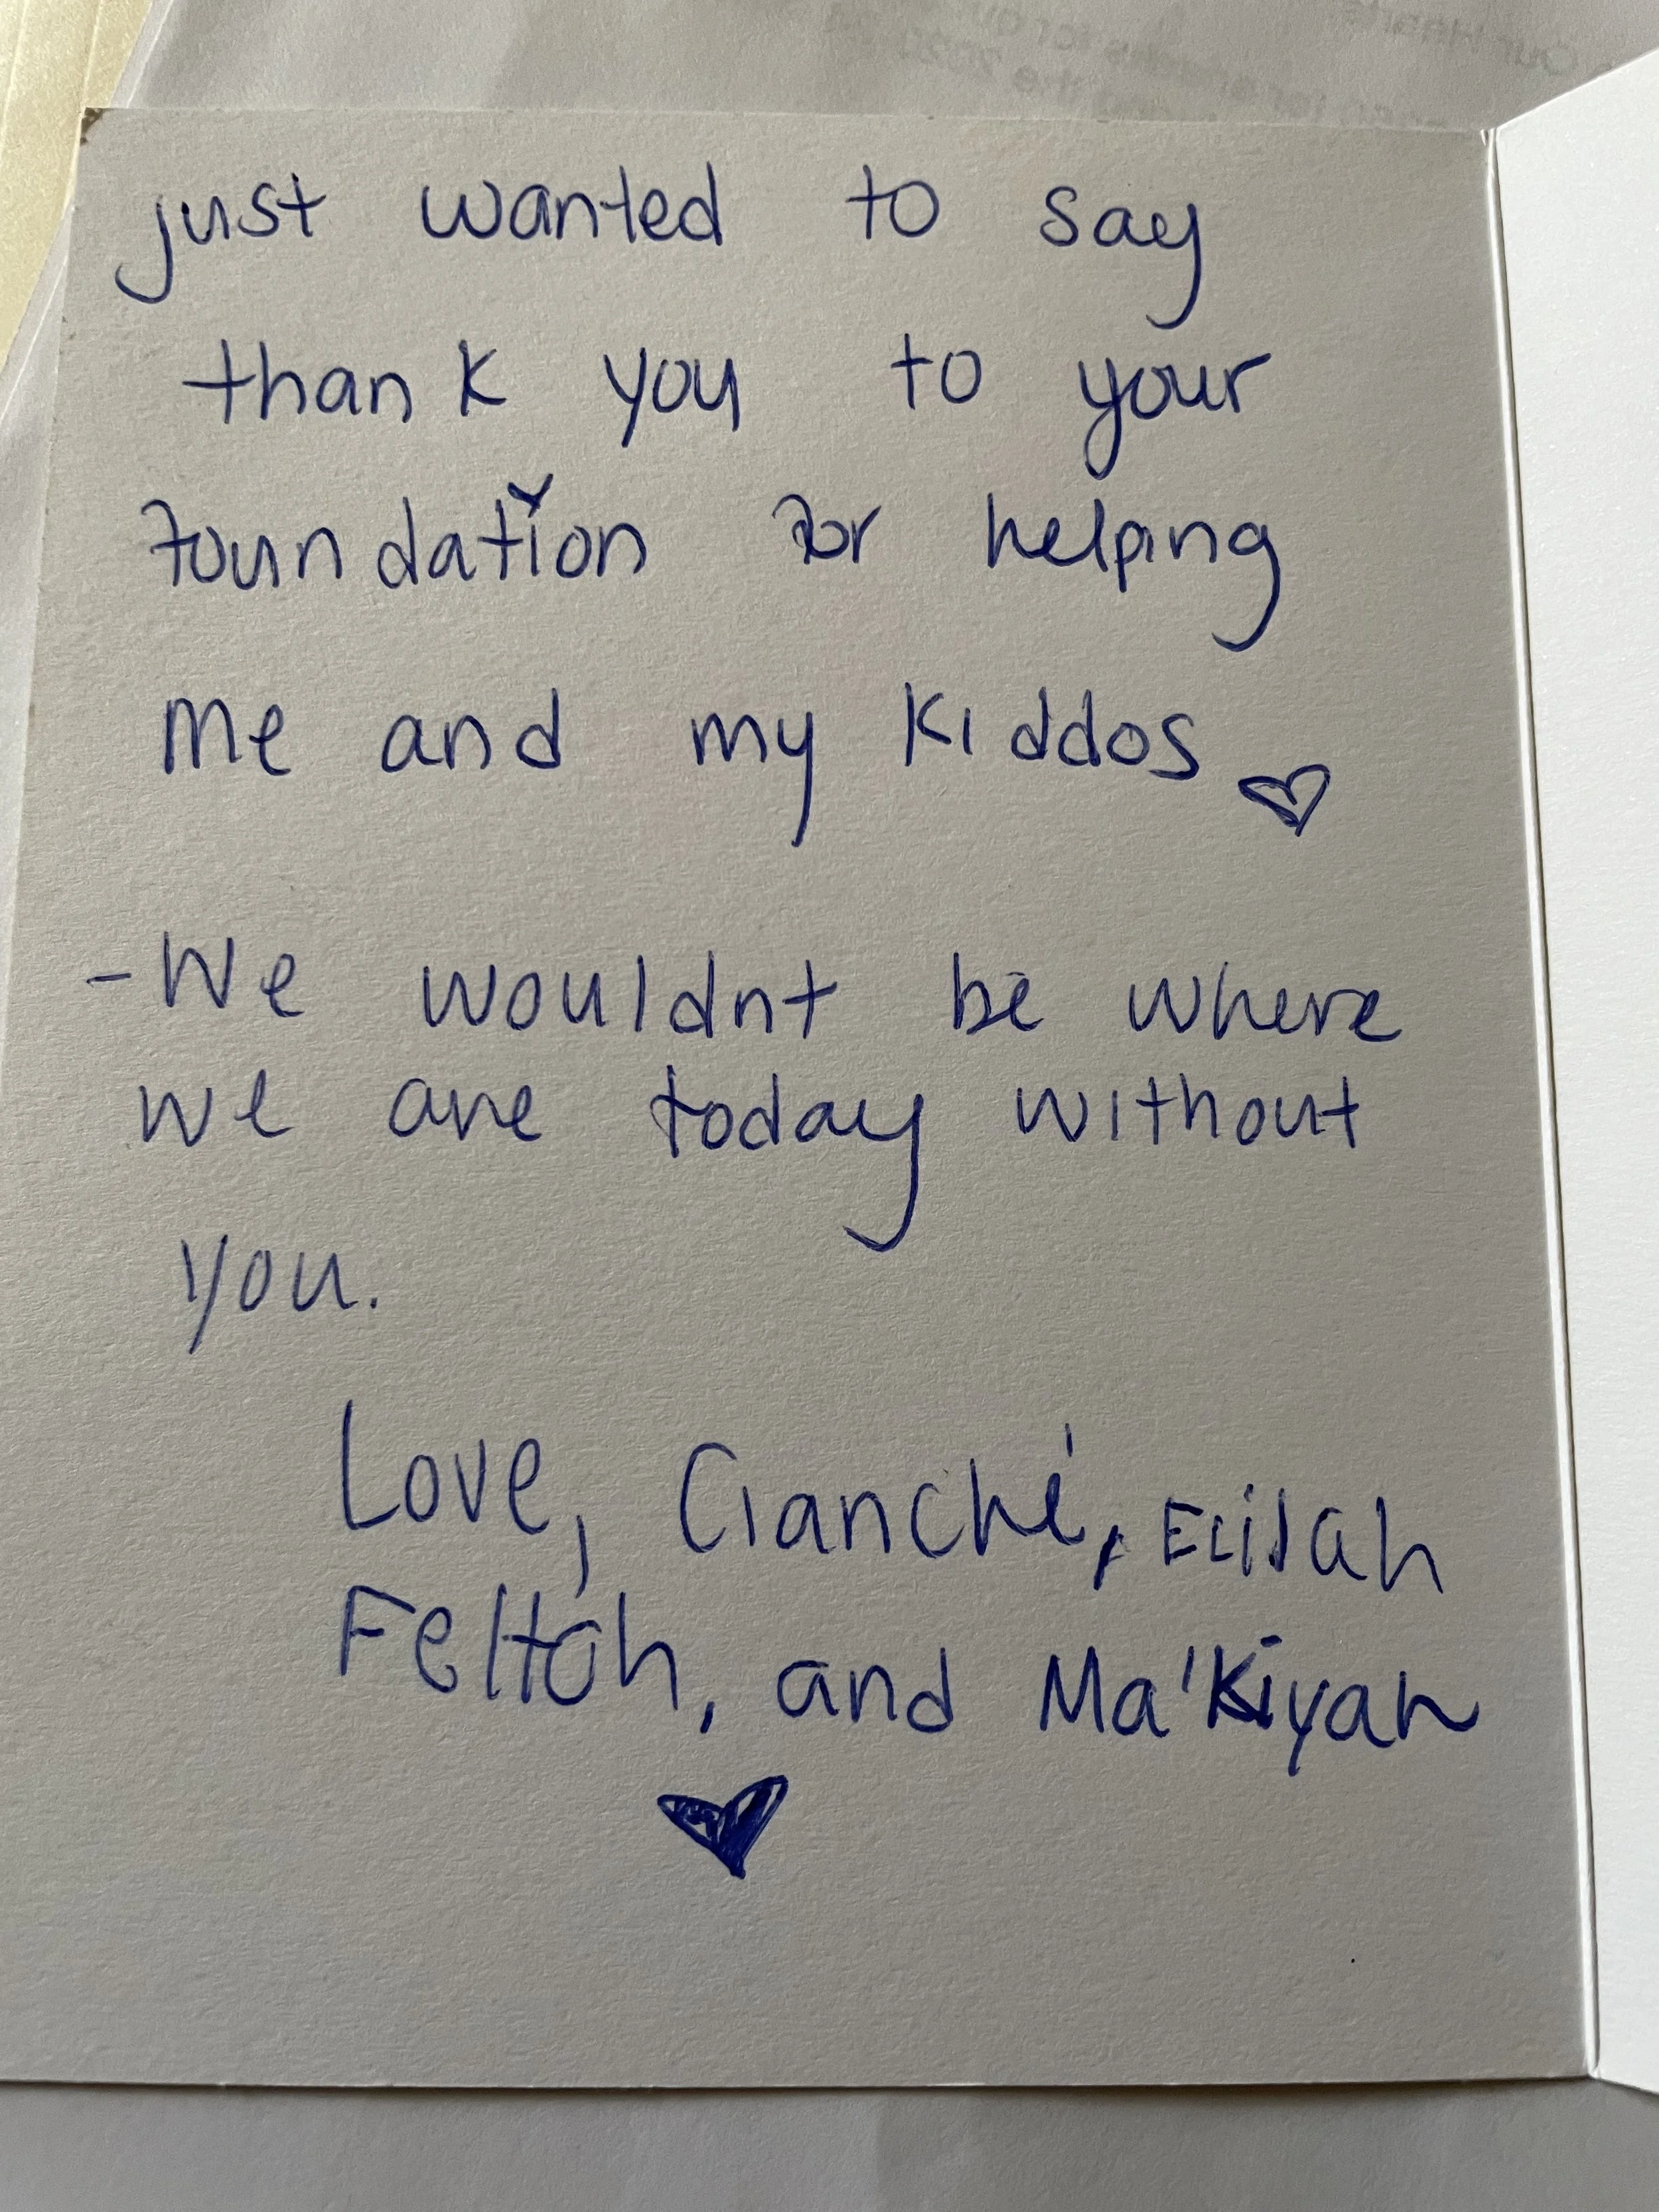 just wanted to say
thank you to your
foundation for helping
me and my kiddos ♡
- We wouldnt be where
we are today without
you.
Love, Cianché, Elijah
Felton, and Ma'Kiyah
♥